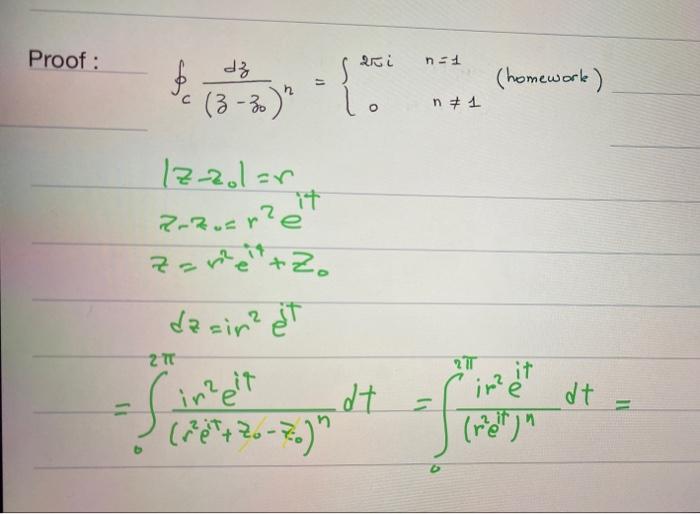 Proof :
∮_c dz/(z-z₀)ⁿ = { 2πi n=1 (homework)
0 n≠1
|z-z₀|=r
z-z₀=r²e^{it}
z=r²e^{it}+z₀
dz=ir²e^{it}
=∫₀^{2π} ir²e^{it}/(r²e^{it}+z₀-z₀)ⁿ dt =∫₀^{2π} ir²e^{it}/(r²e^{it})ⁿ dt =